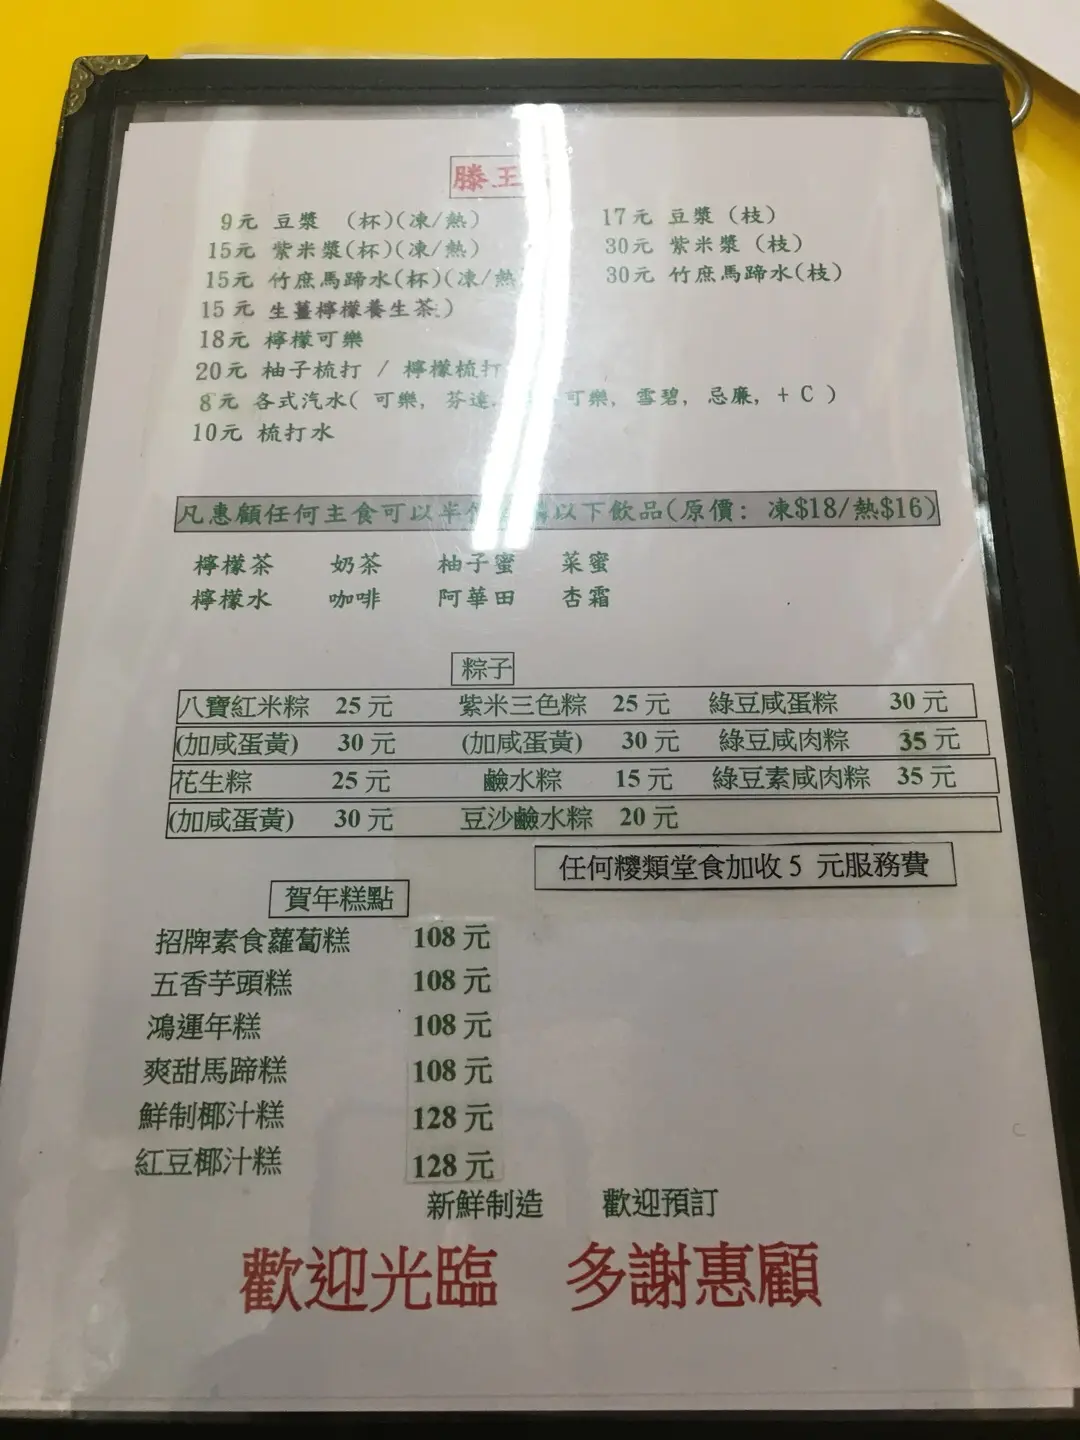 滕王
9元 豆漿 (杯)(凍/熱) 17元 豆漿 (枝)
15元 紫米漿(杯)(凍/熱) 30元 紫米漿 (枝)
15元 竹庶馬蹄水(杯)(凍/熱 30元 竹庶馬蹄水(枝)
15元 生薑檸檬養生茶)
18元 檸檬可樂
20元 柚子梳打 / 檸檬梳打
8元 各式汽水( 可樂, 芬達 可樂, 雪碧, 忌廉, + C )
10元 梳打水
凡惠顧任何主食可以半 以下飲品(原價: 凍$18/熱$16)
檸檬茶 奶茶 柚子蜜 菜蜜
檸檬水 咖啡 阿華田 杏霜
粽子
八寶紅米粽 25 元 紫米三色粽 25 元 綠豆咸蛋粽 30 元
(加咸蛋黃) 30 元 (加咸蛋黃) 30 元 綠豆咸肉粽 35 元
花生粽 25 元 鹼水粽 15 元 綠豆素咸肉粽 35 元
(加咸蛋黃) 30 元 豆沙鹼水粽 20 元
任何糭類堂食加收 5 元服務費
賀年糕點
招牌素食蘿蔔糕 108 元
五香芋頭糕 108 元
鴻運年糕 108 元
爽甜馬蹄糕 108 元
鮮制椰汁糕 128 元
紅豆椰汁糕 128 元
新鮮制造 歡迎預訂
歡迎光臨 多謝惠顧